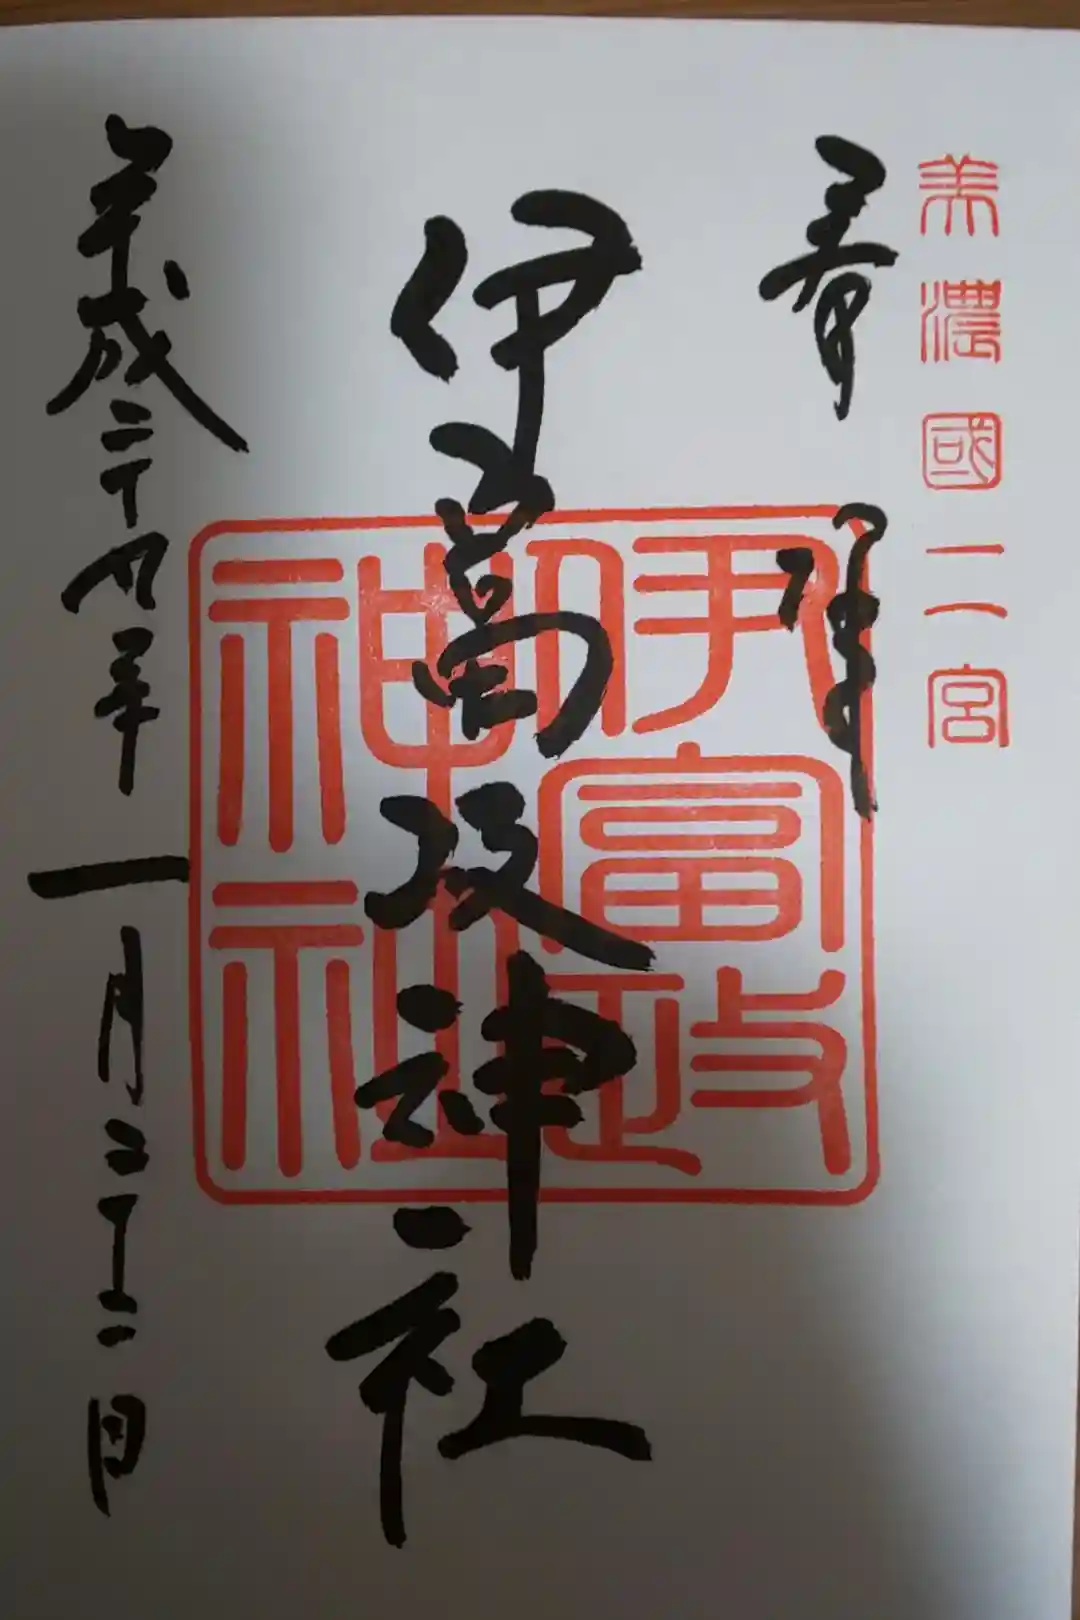 美濃國二宮
奉拝
伊富岐神社
伊富岐神社
平成二十四年一月二十二日